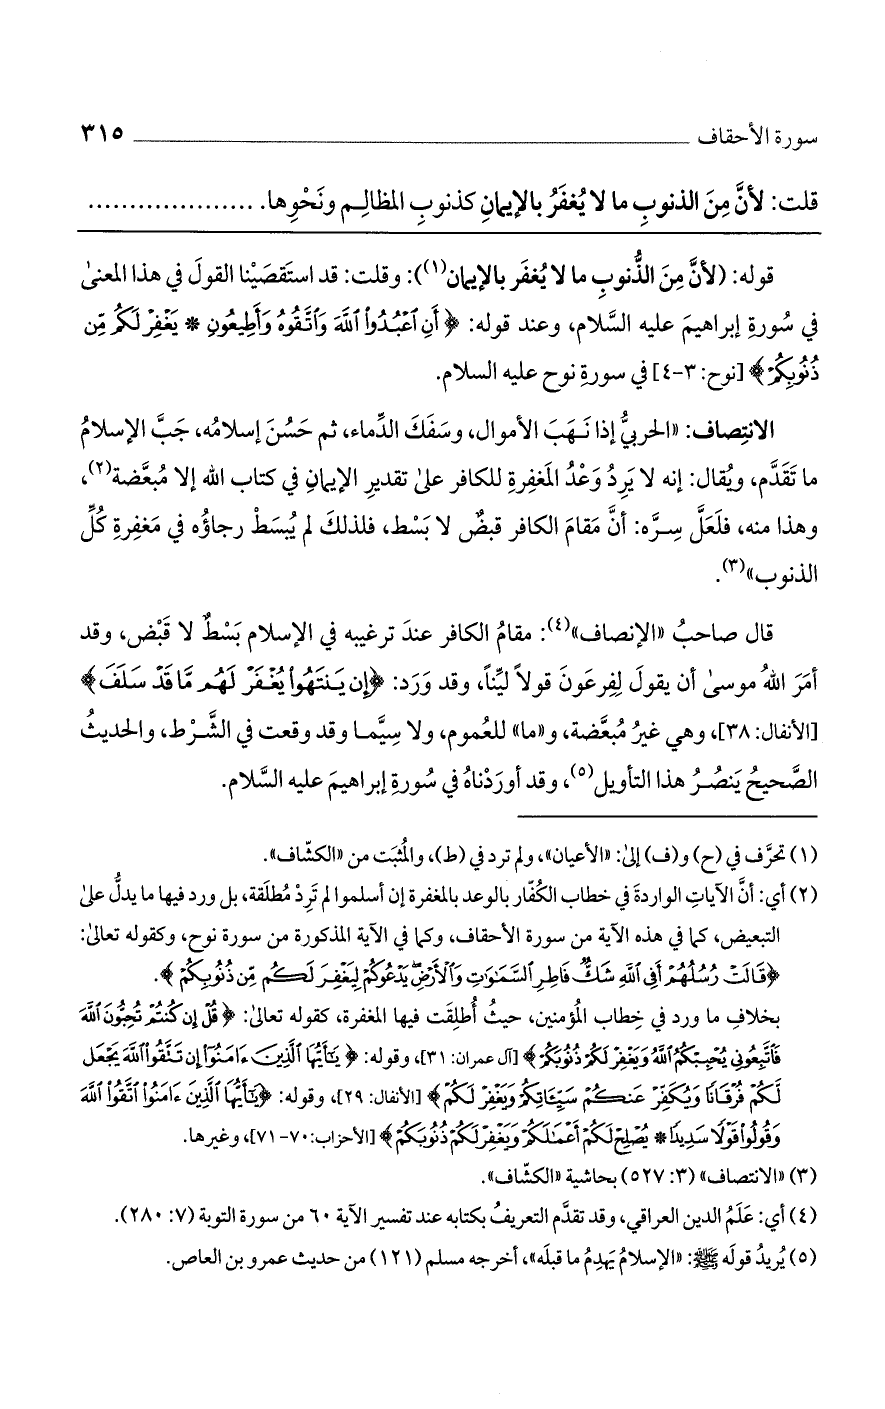 سورة الأحقاف ٣١٥
قلت: لأنَّ مِنَ الذنوبِ ما لا يُغفَرُ بالإيمانِ كذنوبِ المظالِـم ونَحْوِها. ....................
قوله: (لأنَّ مِنَ الذُّنوبِ ما لا يُغفَر بالإيمان(١)): وقلت: قد استَقصَيْنا القولَ في هذا المعنىٰ
في سُورةِ إبراهيمَ عليه السَّلام، وعند قوله: ﴿أَنِ ٱعْبُدُواْ ٱللَّهَ وَٱتَّقُوهُ وَأَطِيعُونِ * يَغْفِرْ لَكُم مِّن
ذُنُوبِكُمْ﴾ [نوح: ٣-٤] في سورةِ نوح عليه السلام.
الانتِصاف: «الحربيُّ إذا نَـهَبَ الأموال، وسَفَكَ الدِّماء، ثم حَسُنَ إسلامُه، جَبَّ الإسلامُ
ما تَقَدَّم، ويُقال: إنه لا يَرِدُ وَعْدُ المَغفِرةِ للكافر علىٰ تقديرِ الإيمانِ في كتاب الله إلا مُبعَّضة(٢)،
وهذا منه، فلَعَلَّ سِـرَّه: أنَّ مَقامَ الكافر قبضٌ لا بَسْط، فلذلكَ لم يُبسَطْ رجاؤُه في مَغفِرةِ كُلِّ
الذنوب»(٣).
قال صاحبُ «الإنصاف»(٤): مقامُ الكافر عندَ ترغيبه في الإسلام بَسْطٌ لا قَبْض، وقد
أمَرَ اللهُ موسىٰ أن يقولَ لِفِرعَونَ قولاً ليِّناً، وقد وَرَد: ﴿إِن يَنتَهُواْ يُغْفَرْ لَهُم مَّا قَدْ سَلَفَ﴾
[الأنفال: ٣٨]، وهي غيرُ مُبعَّضة، و«ما» للعُموم، ولا سِيَّمـا وقد وقعت في الشَّـرْط، والحديثُ
الصَّحيحُ يَنصُـرُ هذا التأويل(٥)، وقد أورَدْناهُ في سُورةِ إبراهيمَ عليه السَّلام.
(١) تحرَّف في (ح) و(ف) إلىٰ: «الأعيان»، ولم ترد في (ط)، والمُثبَت من «الكشّاف».
(٢) أي: أنَّ الآياتِ الواردةَ في خطاب الكُفّار بالوعد بالمغفرة إن أسلموا لم تَرِدْ مُطلَقة، بل ورد فيها ما يدلُّ علىٰ
التبعيض، كما في هذه الآية من سورة الأحقاف، وكما في الآية المذكورة من سورة نوح، وكقوله تعالىٰ:
﴿قَالَتْ رُسُلُهُمْ أَفِى ٱللَّهِ شَكٌّ فَاطِرِ ٱلسَّمَٰوَٰتِ وَٱلْأَرْضِ ۖ يَدْعُوكُمْ لِيَغْفِرَ لَكُم مِّن ذُنُوبِكُمْ﴾.
بخلافِ ما ورد في خِطاب المُؤمنين، حيثُ أُطلِقَت فيها المغفرة، كقوله تعالىٰ: ﴿قُلْ إِن كُنتُمْ تُحِبُّونَ ٱللَّهَ
فَٱتَّبِعُونِى يُحْبِبْكُمُ ٱللَّهُ وَيَغْفِرْ لَكُمْ ذُنُوبَكُمْ﴾ [آل عمران: ٣١]، وقوله: ﴿يَٰٓأَيُّهَا ٱلَّذِينَ ءَامَنُوٓاْ إِن تَتَّقُواْ ٱللَّهَ يَجْعَل
لَّكُمْ فُرْقَانًا وَيُكَفِّرْ عَنكُمْ سَيِّـَٔاتِكُمْ وَيَغْفِرْ لَكُمْ﴾ [الأنفال: ٢٩]، وقوله: ﴿يَٰٓأَيُّهَا ٱلَّذِينَ ءَامَنُواْ ٱتَّقُواْ ٱللَّهَ
وَقُولُواْ قَوْلًا سَدِيدًا * يُصْلِحْ لَكُمْ أَعْمَٰلَكُمْ وَيَغْفِرْ لَكُمْ ذُنُوبَكُمْ﴾ [الأحزاب: ٧٠-٧١]، وغيرها.
(٣) «الانتصاف» (٣: ٥٢٧) بحاشية «الكشّاف».
(٤) أي: عَلَمُ الدين العراقي، وقد تقدَّم التعريفُ بكتابه عند تفسير الآية ٦٠ من سورة التوبة (٧: ٢٨٠).
(٥) يُريدُ قولَه ﷺ: «الإسلامُ يَهدِمُ ما قبلَه»، أخرجه مسلم (١٢١) من حديث عمرو بن العاص.